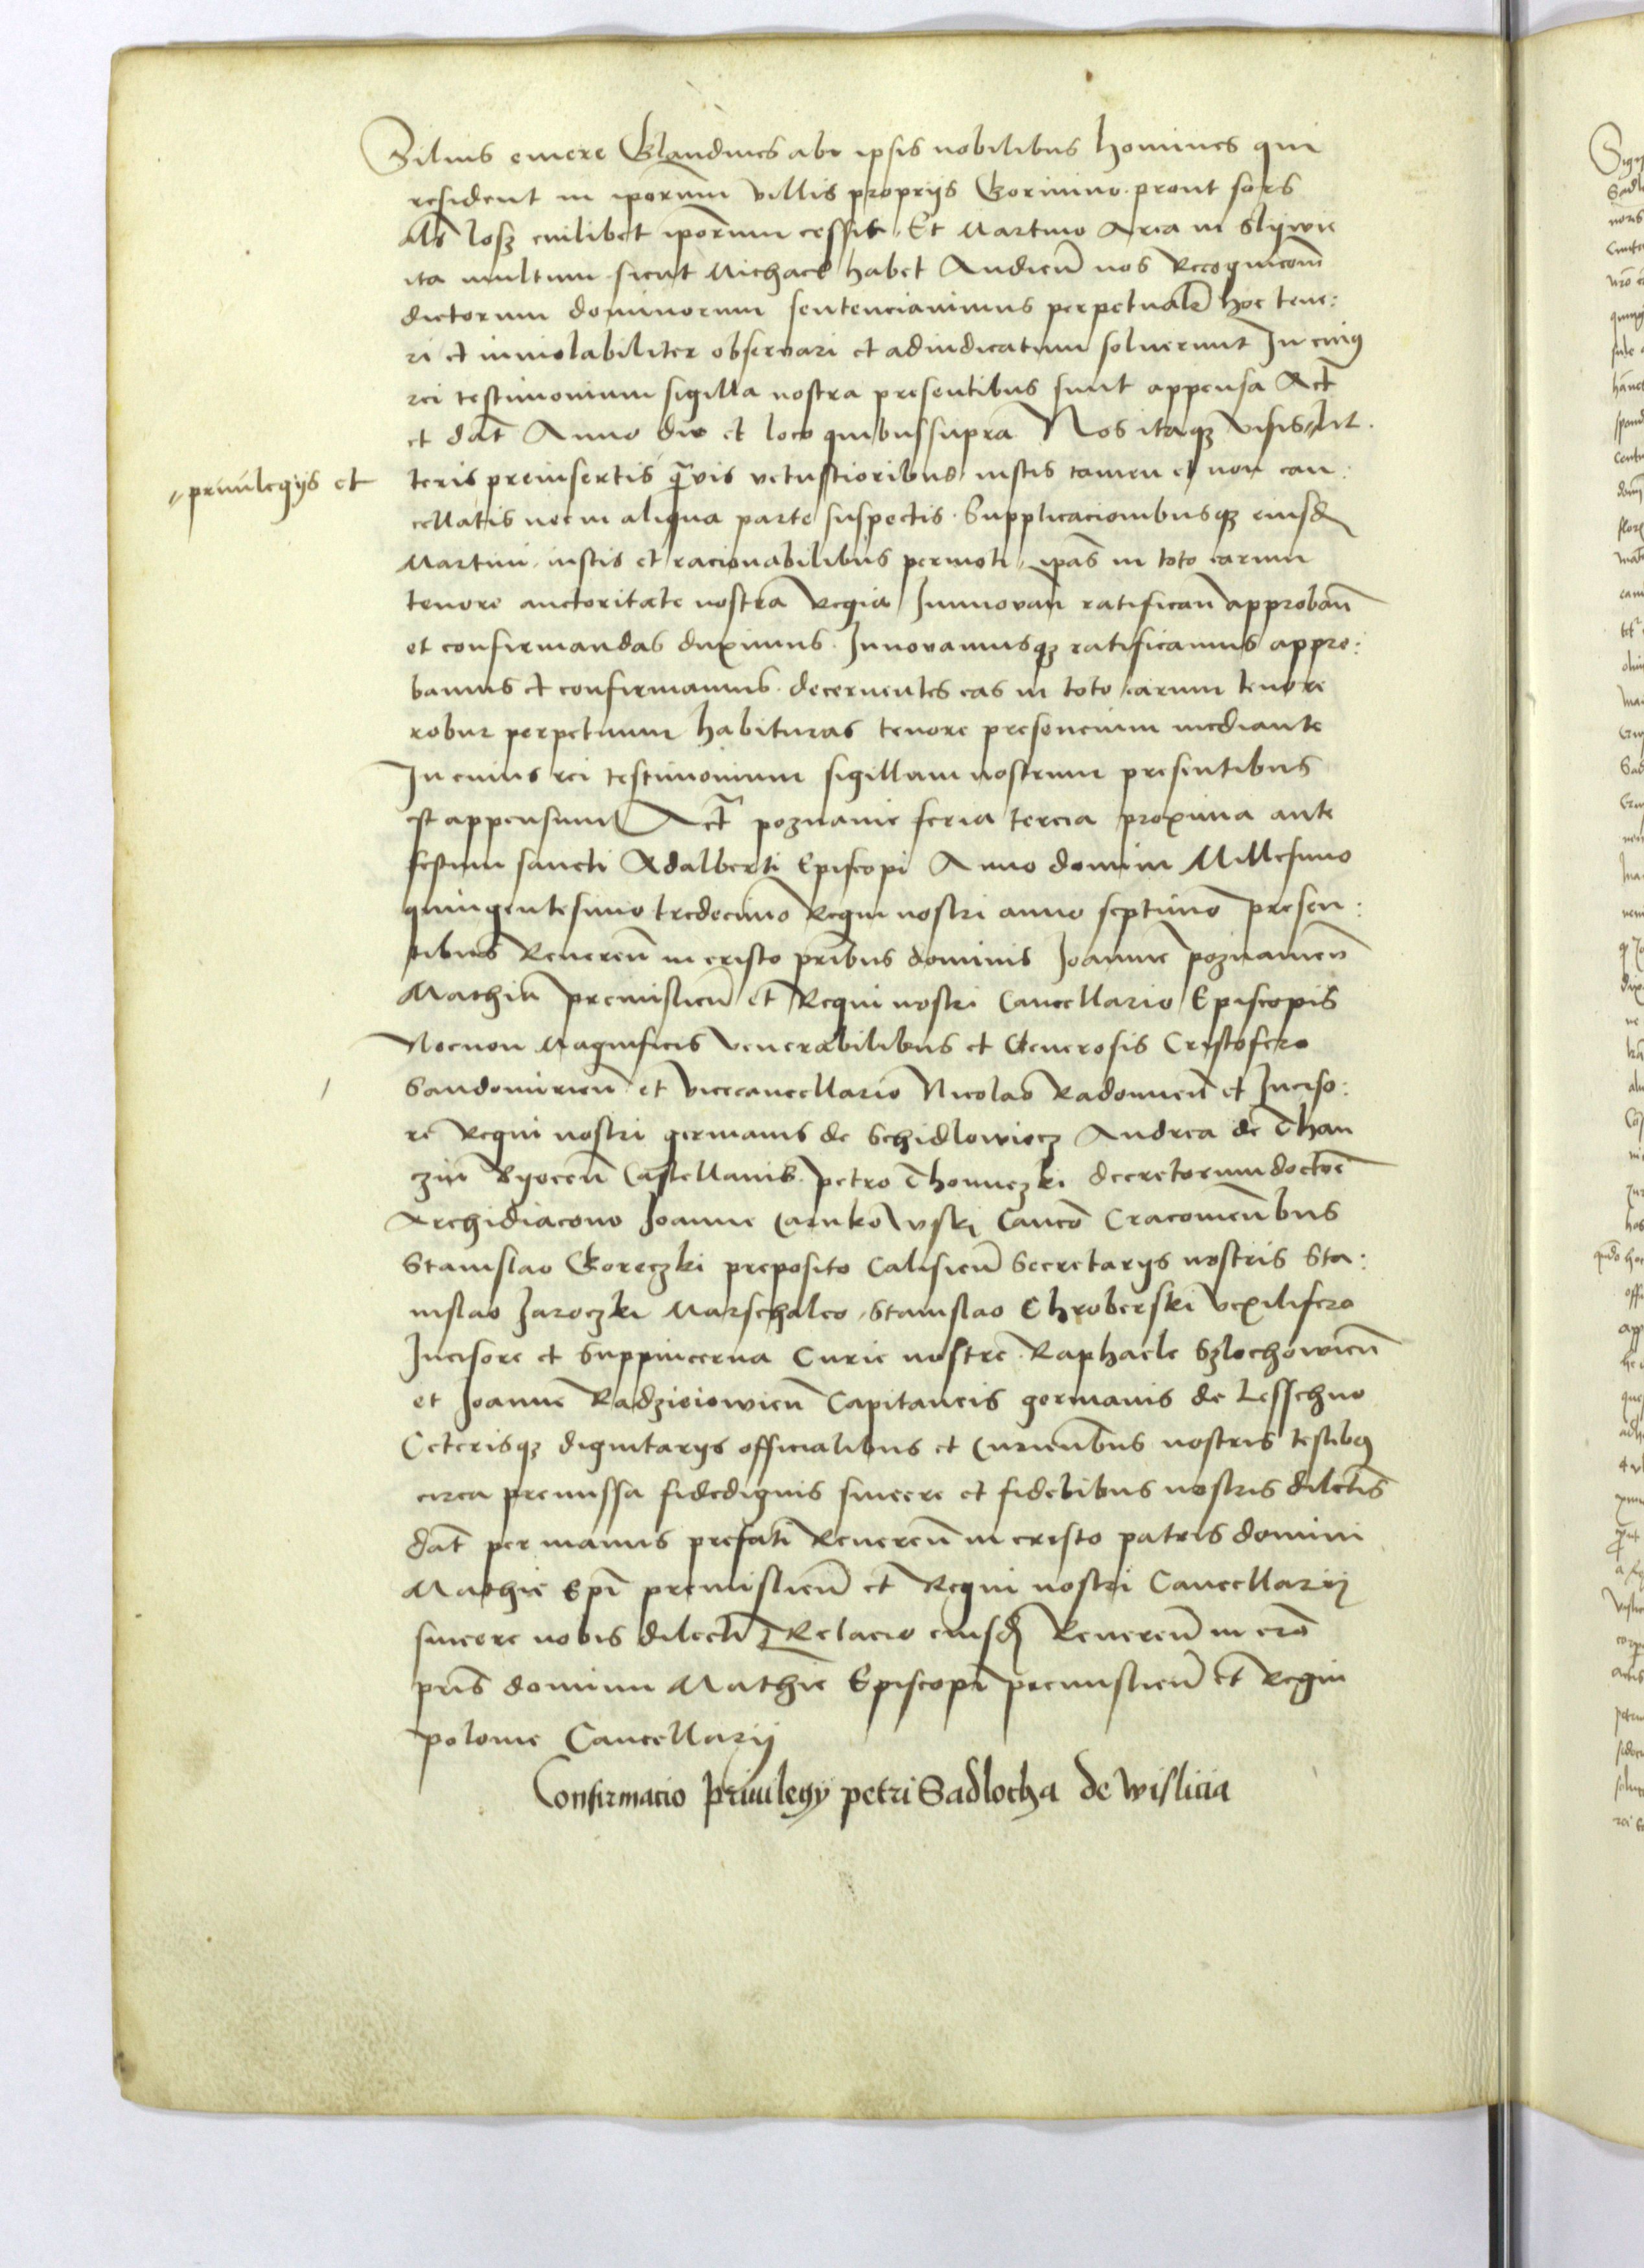 Filius emere Glandines abe ipsis nobilibus homines qui
resident in iporum villis proprijs Gorinino prout sors
Als̄ losz cuilibet ipōrum cessit. Et Martino Area in Slijwie
ita multum sicut Michael habet Audien̄ nos Recognicom̄
dictorum dominorum sentenciauimus perpetuale hoc tene:
ri et inuiolabiliter obseruari et adiudicatum soluerunt In cuiꝰ
rei testimonium sigilla nostra presentibus sunt appensa Act̄
et dat̄ Anno die et loco quibus supra Nos itaqꝫ visis lit.
„priuilegijs et
teris preinsertis q̄uis vetustioribus iustis tamen et non can:
cellatis nec in aliqua parte suspectis. Supplicacionibusqꝫ eiusd̄
Martini iustis et racionabilibus permoti ip̄as in toto earum
tenore auctoritate nostra Regia Innouan̄ ratifican̄ approban̄
et confirmandas duximus. Innouamusqꝫ ratificamus appro:
bamus et confirmamus. decernentes eas in toto earum tenore
robur perpetuum habituras tenore presencium mediante
In cuius rei testimonium sigillum nostrum presentibus
est appensum Act̄ poznanie feria tercia proxima ante
festum sancti Adalberti Episcopi Anno domini Millesimo
quingentesimo tredecimo Regni nostri anno septimo presen:
tibus Reueren̄ in cristo pribus dominis Joanne poznanien̄
Mathia premislien̄ et Regni nostri Cancellario Episcopis
Necnon Magnificis venerabilibus et Generosis Cristofero
Sandomirien̄ et vicecancellario Nicolao Radomien̄ et Inciso:
re Regni nostri germanis de Schidlowiecz Andrea de Than
czin Byecen̄ Castellanis. petro Thomiczki decretorum doctoē
Archidiacono Joanne Carnkowski Canco Cracouien̄bus
Stanislao Goreczki preposito Calisien̄ Secretarijs nostris Sta:
nislao Jaroczki Marschalco. Stanislao Chroberski vexilifero
Incisore et Suppincerna Curie nostre. Raphaele Szlochowien̄
et Joanne Radzieiowien̄ Capitaneis germanis de Lesschno
Ceterisqꝫ dignitarijs officialibus et Curien̄bus nostris testibꝰ
circa premissa fidedignis sincere et fidelibus nostris dilectis
dat̄ per manus prefati Reueren̄ in cristo patris domini
Mathie Epi premislien̄ et Regni nostri Cancellarij
sincere nobis dilecti Relacio eiusd̄ Reueren̄ in cr̄o
pris domini Mathie Episcopi premislien̄ et Regni
polonie Cancellarij
Confirmacio priuilegij petri Sadlocha de Wislicia